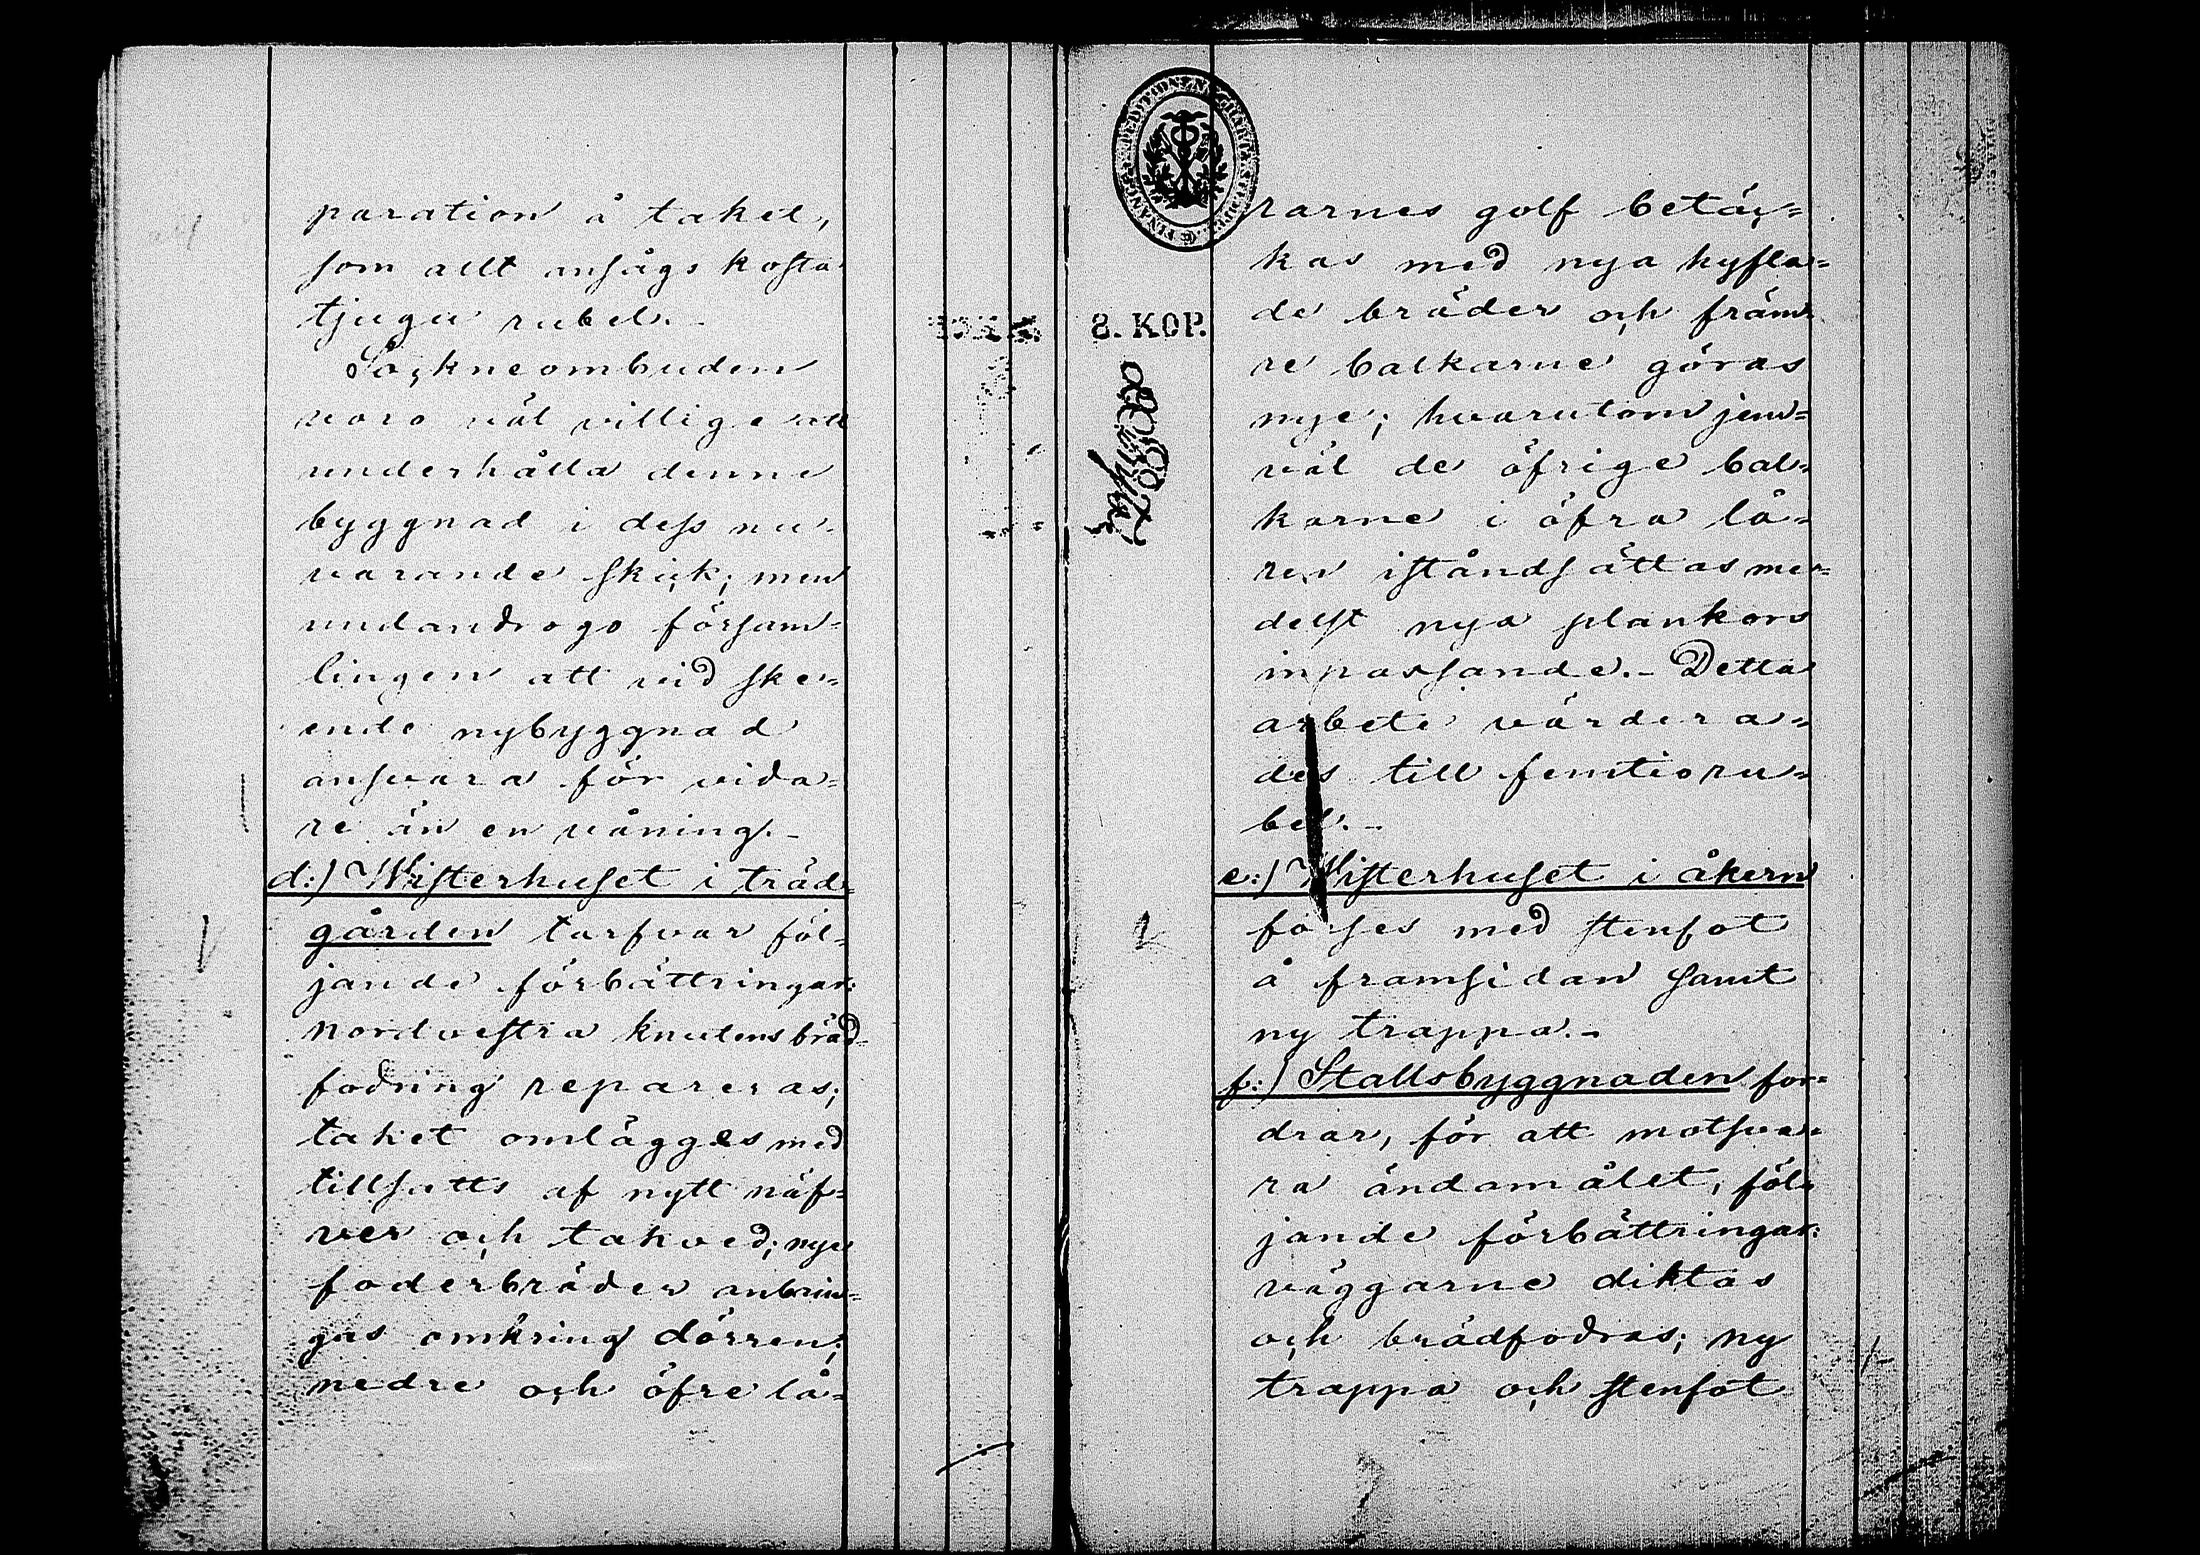 paration å taket,
som allt ansågs kosta
tjugu rubel.
Sockneombuden
voro väl villige att
underhålla denne
byggnad i dess nu-
varande skick; men
undandrogo försam-
lingen att vid ske-
ende nybyggnad
ansvara för vida-
re än en våning.-
d:) Wisterhuset i träd-
gården tarfvar föl-
jande förbättringar:
Nordvestra knutens bräd-
fodring repareras;
taket omlägges med
tillsatts af nytt näf-
ver och takved; nya
foderbräder anbrin-
gas omkring dörren;
nedre och öfre lå-
8. KOP.
rarnes golf betäc-
kas med nya hyfla-
de bräder och främ-
re balkarne göras
nye; hvarutom jem-
väl de öfrige bal-
karne i öfra lå-
ren iståndsättas me-
delst nya plankors
inpassande.- Detta
arbete värdera-
des till femtio ru-
bel.-
e:) Wisterhuset i åkern
förses med stenfot
å framsidan samt
ny trappa.-
f:) Stallsbyggnaden for-
drar, för att motsva-
ra ändamålet, föl-
jande förbättringar:
väggarne diktas
och brädfodras; ny
trappa och stenfot